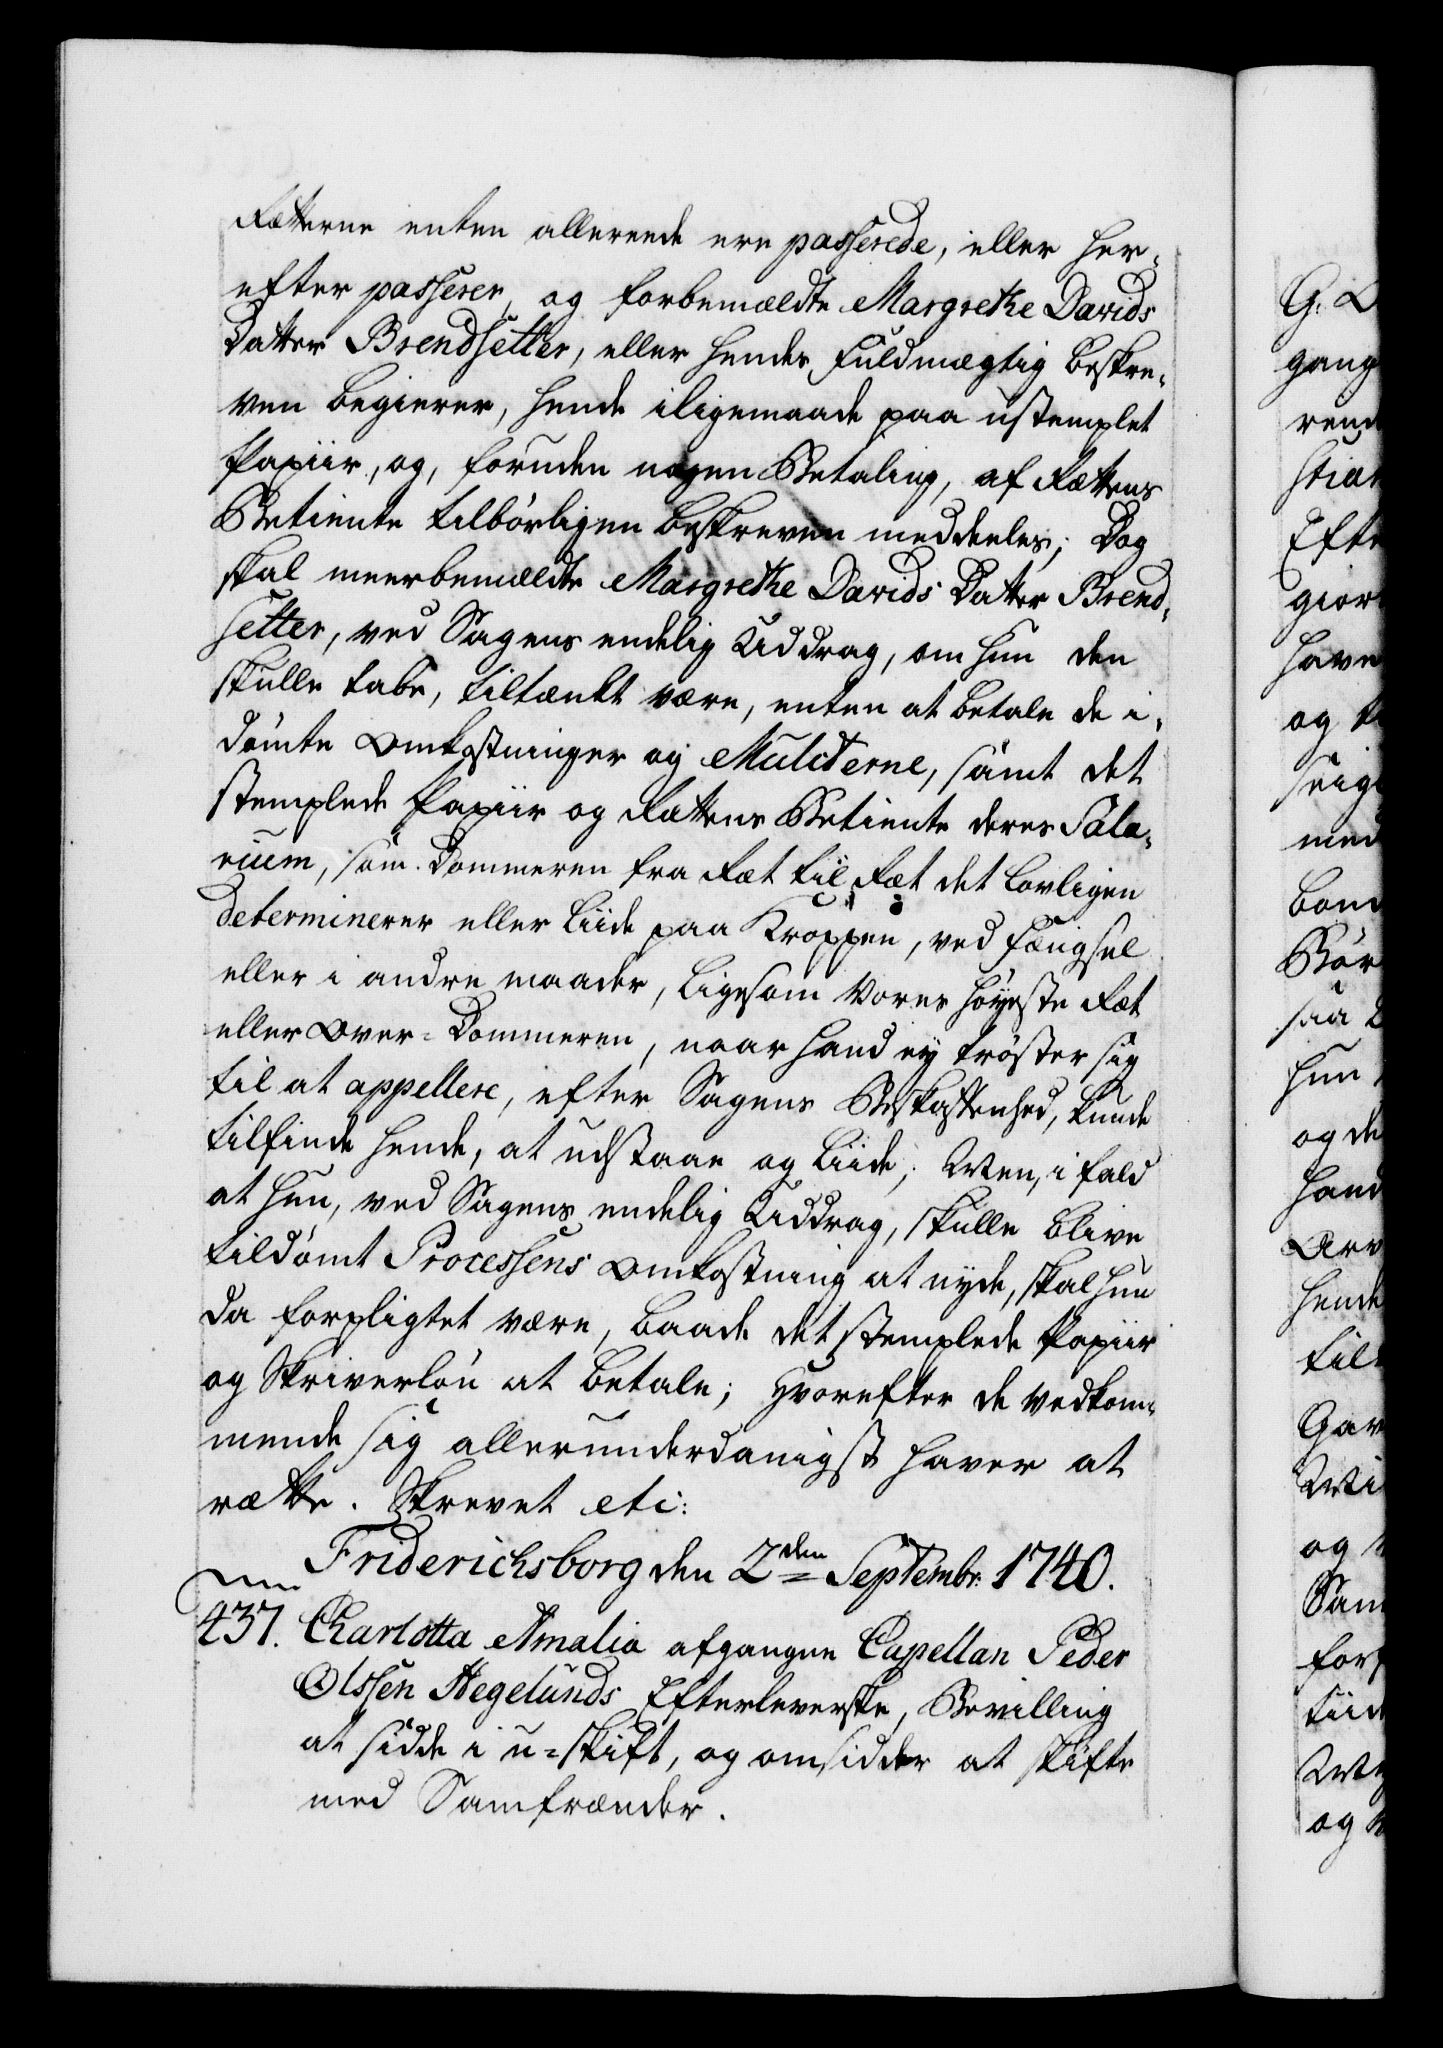 Rætterne enten allereede ere passerede, eller her¬
efter passerer, og forbemældte Margrethe Davids
Datter Brendsetter, eller hendes Fuldmægtig beskre¬
ven begierer, hende iligemaade paa ustemplet
Papiir, og, foruden nogen Betaling, af Rættens
Betiente tilbørligen beskreven meddeeles; Dog
skal meerbemældte Margrethe Davids Datter Brend¬
setter, ved Sagens endelig Uddrag, om hun den
skulle tabe, tiltænkt være, enten at betale de i¬
dømte Omkostninger og Mulcterne, samt det
stemplede Papiir og Rættens Betiente deres Sala¬
rium, som Dommeren fra Ræt til Ræt det lovligen
determinerer eller liide paa Kroppen, ved Fængsel
eller i andre maader, ligesom Vores Høyeste Ræt
eller Over-Dommeren, naar hand ey trøster sig
til at appellere, efter Sagens Beskaffenhed, kunde
tilfinde hende, at udstaae og liide; Men, i fald
at hun, ved Sagens endelig Uddrag, skulle blive
tildømt Processens Omkostning at nyde, skal hun
da forpligtet være, baade det stemplede Papiir
og Skriverløn at betale; Hvorefter de vedkom¬
mende sig allerunderdanigst haver at
rætte. Skrevet etc:
Friderichsborg den 2den Septembr: 1740.
437. Charlotta Amalia afgangne Capellan Peder
Olssen Hegelunds Efterleverske, Bevilling
at sidde i u-skift, og omsidder at skifte
med Samfrænder.
G. L
gang
rend
stian
Efte
gior
have
og
seig
med
bon
Bør
saa
hun
og de
hand
Arv
hende
til
Gav
Mi
og
Sam
for
tiid
og